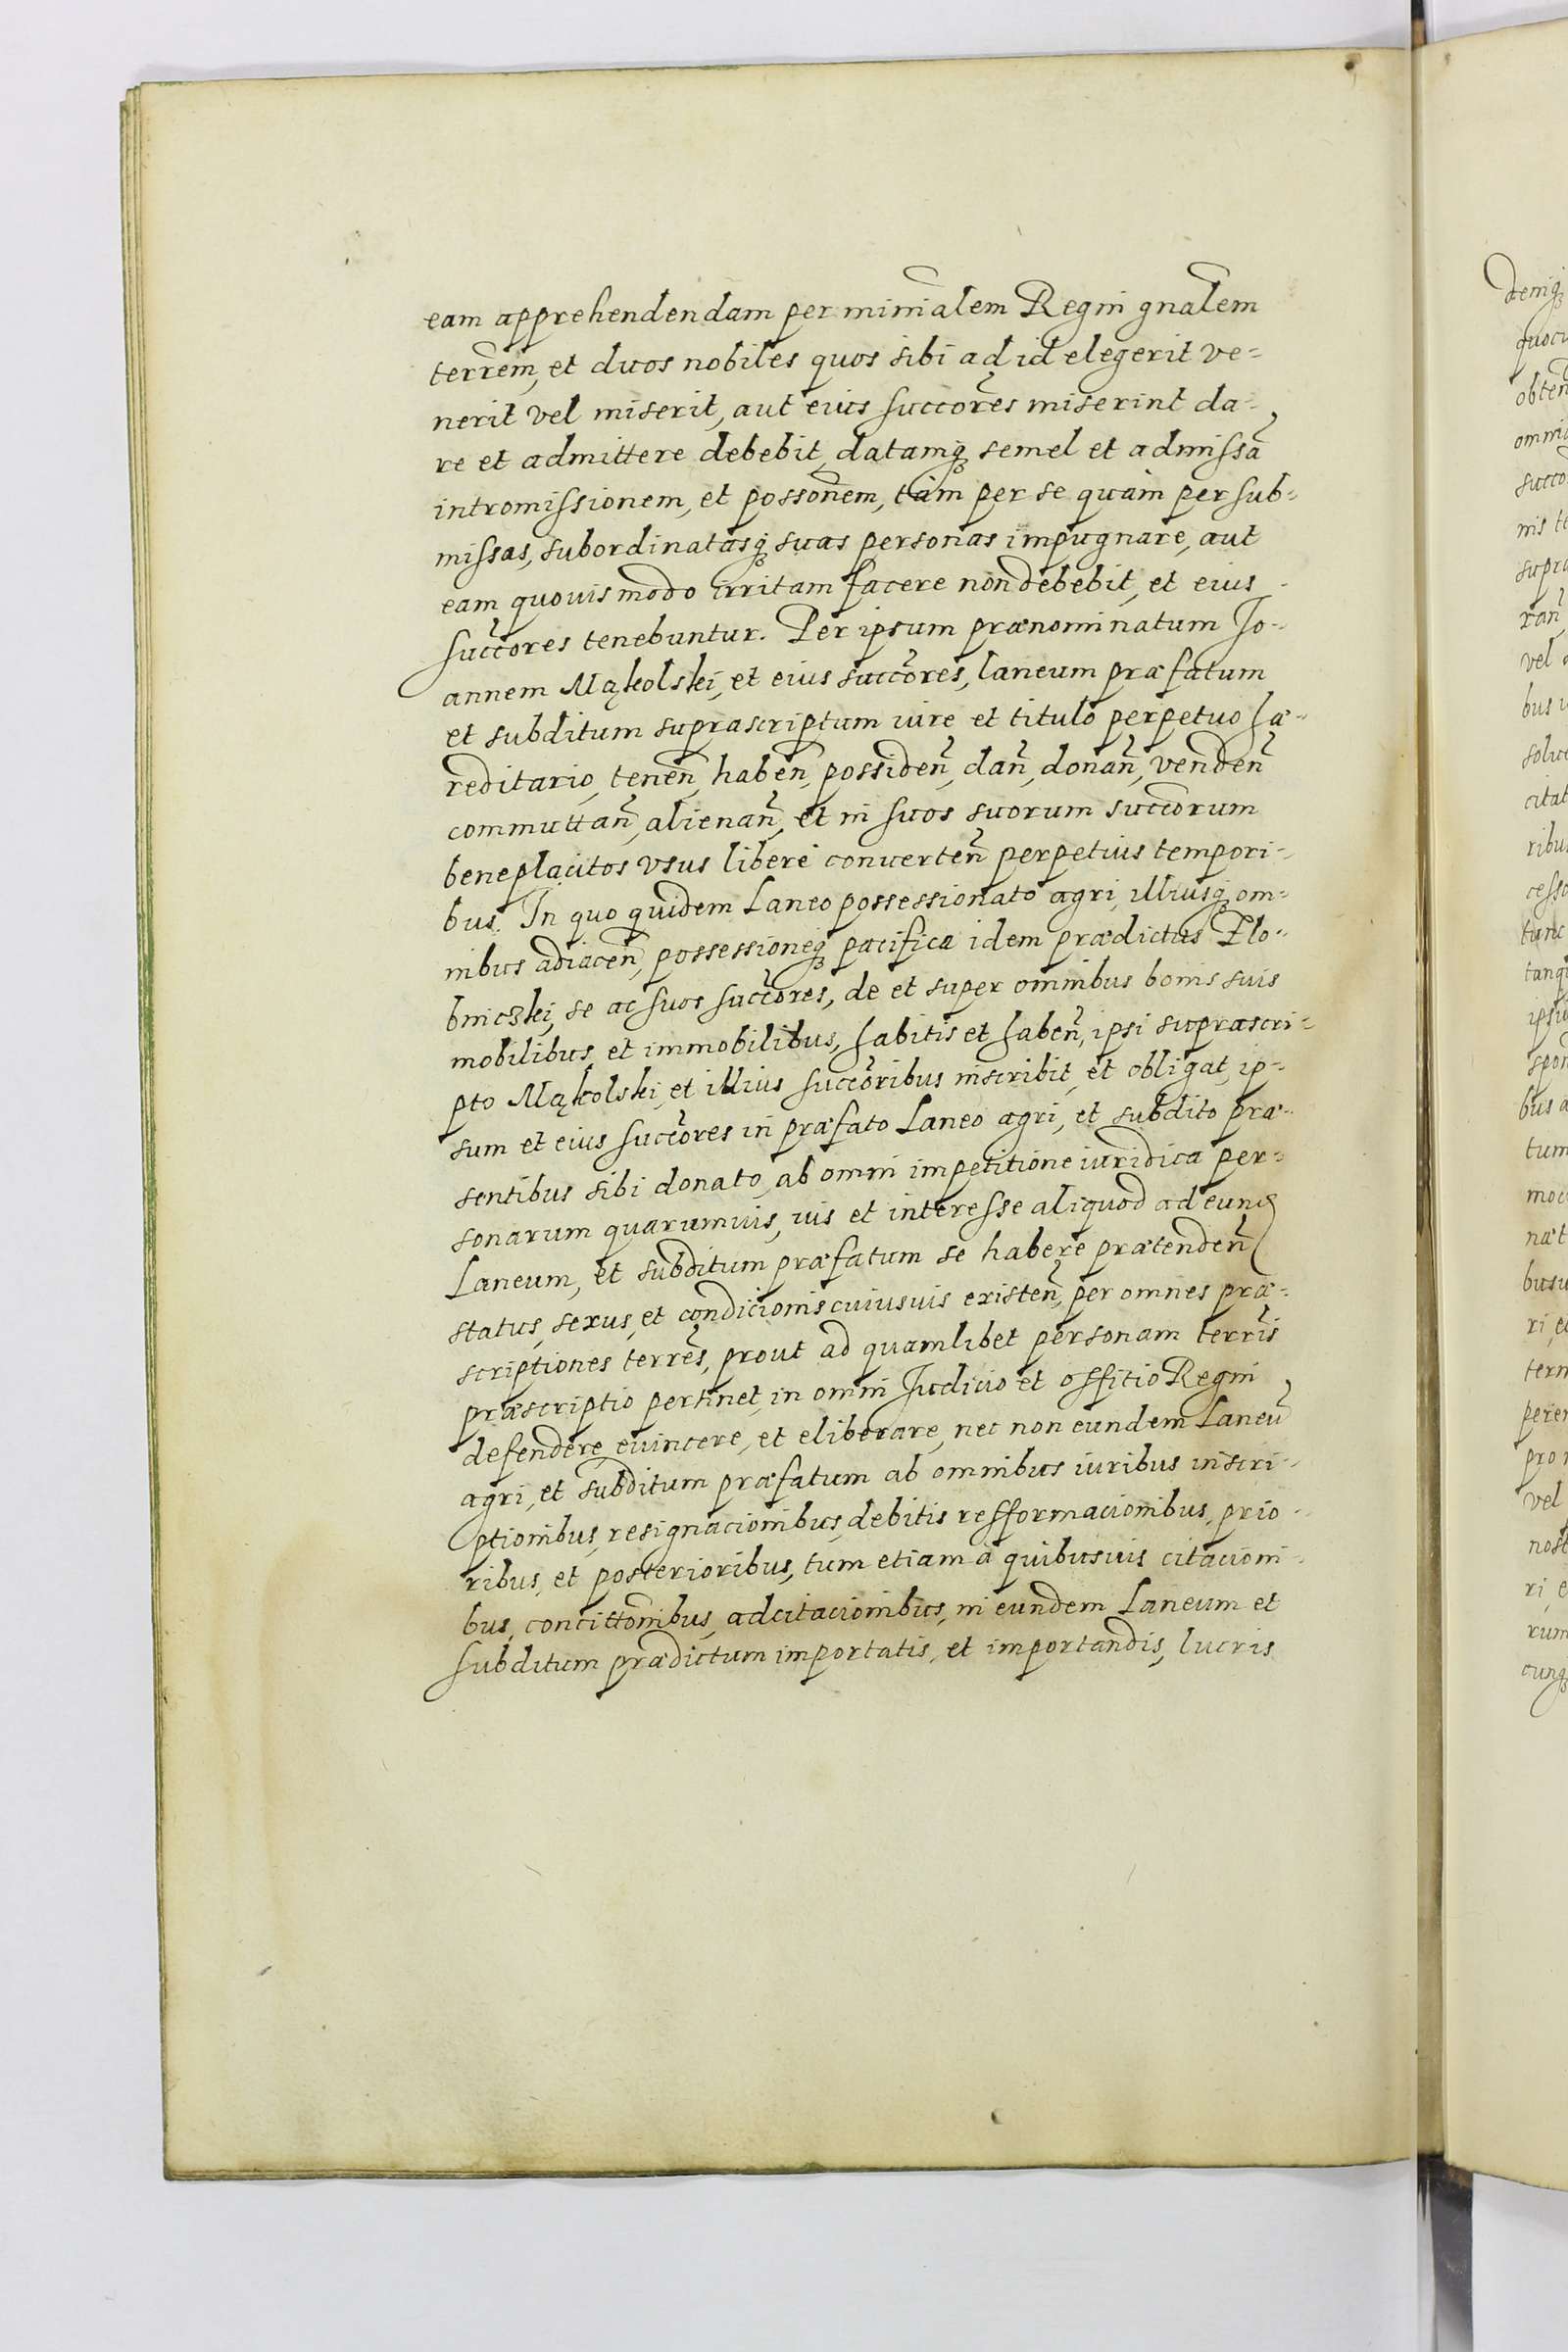 eam apprehendendam per minialem Regni gnalem
terrem, et duos nobiles quos sibi ad id elegerit ve=
nerit vel miserit, aut eius succores miserint da=
re et admittere debebit, datamq₃ semel et admissã
intromissionem, et possonem, tàm per se quàm per sub=
missas, subordinatasq₃ suas personas impugnare, aut
eam quouis modo irritam facere non debebit, et eius
succores tenebuntur. Per ipsum prænominatum Jo=
annem Mąkolski, et eius succores, laneum præfatum
et subditum suprascriptum iure et titulo perpetuo hæ=
reditario, tenen̄, haben̄, possiden̄, dan̄, donan̄, venden̄
commuttan̄, alienan̄, et in suos suorum succorum
beneplacitos vsus liberè conuerten̄ perpetuis tempori=
bus. In quo quidem Laneo possessionato agri, illiusq₃ om=
nibus adiacen̄, possessioneq₃ pacifica idem prædictus Zło=
bniczki, se ac suos succores, de et super omnibus bonis suis
mobilibus, et immobilibus, habitis et haben̄, ipsi suprascri=
pto Mąkolski, et illius succoribus inscribit, et obligat, ip=
sum et eius succores in præfato Laneo agri, et subdito præ=
sentibus sibi donato, ab omni impetitione iuridica per=
sonarum quarumuis, ius et interesse aliquod ad eund
Laneum, et subditum præfatum se habere prætenden̄
status, sexus, et condicionis cuiusuis existen̄, per omnes præ=
scriptiones terres, prout ad quamlibet personam terris
præscriptio pertinet, in omni Judicio et offitio Regni
defendere, euincere, et eliberare, nec non eundem Laneũ
agri, et subditum præfatum ab omnibus iuribus inscri=
ptionibus, resignacionibus, debitis refformacionibus, prio=
ribus, et posterioribus, tum etiam à quibusuis citacioni=
bus, concittonibus, adcitacionibus, in eundem Laneum et
subditum prædictum importatis, et importandis, lucris